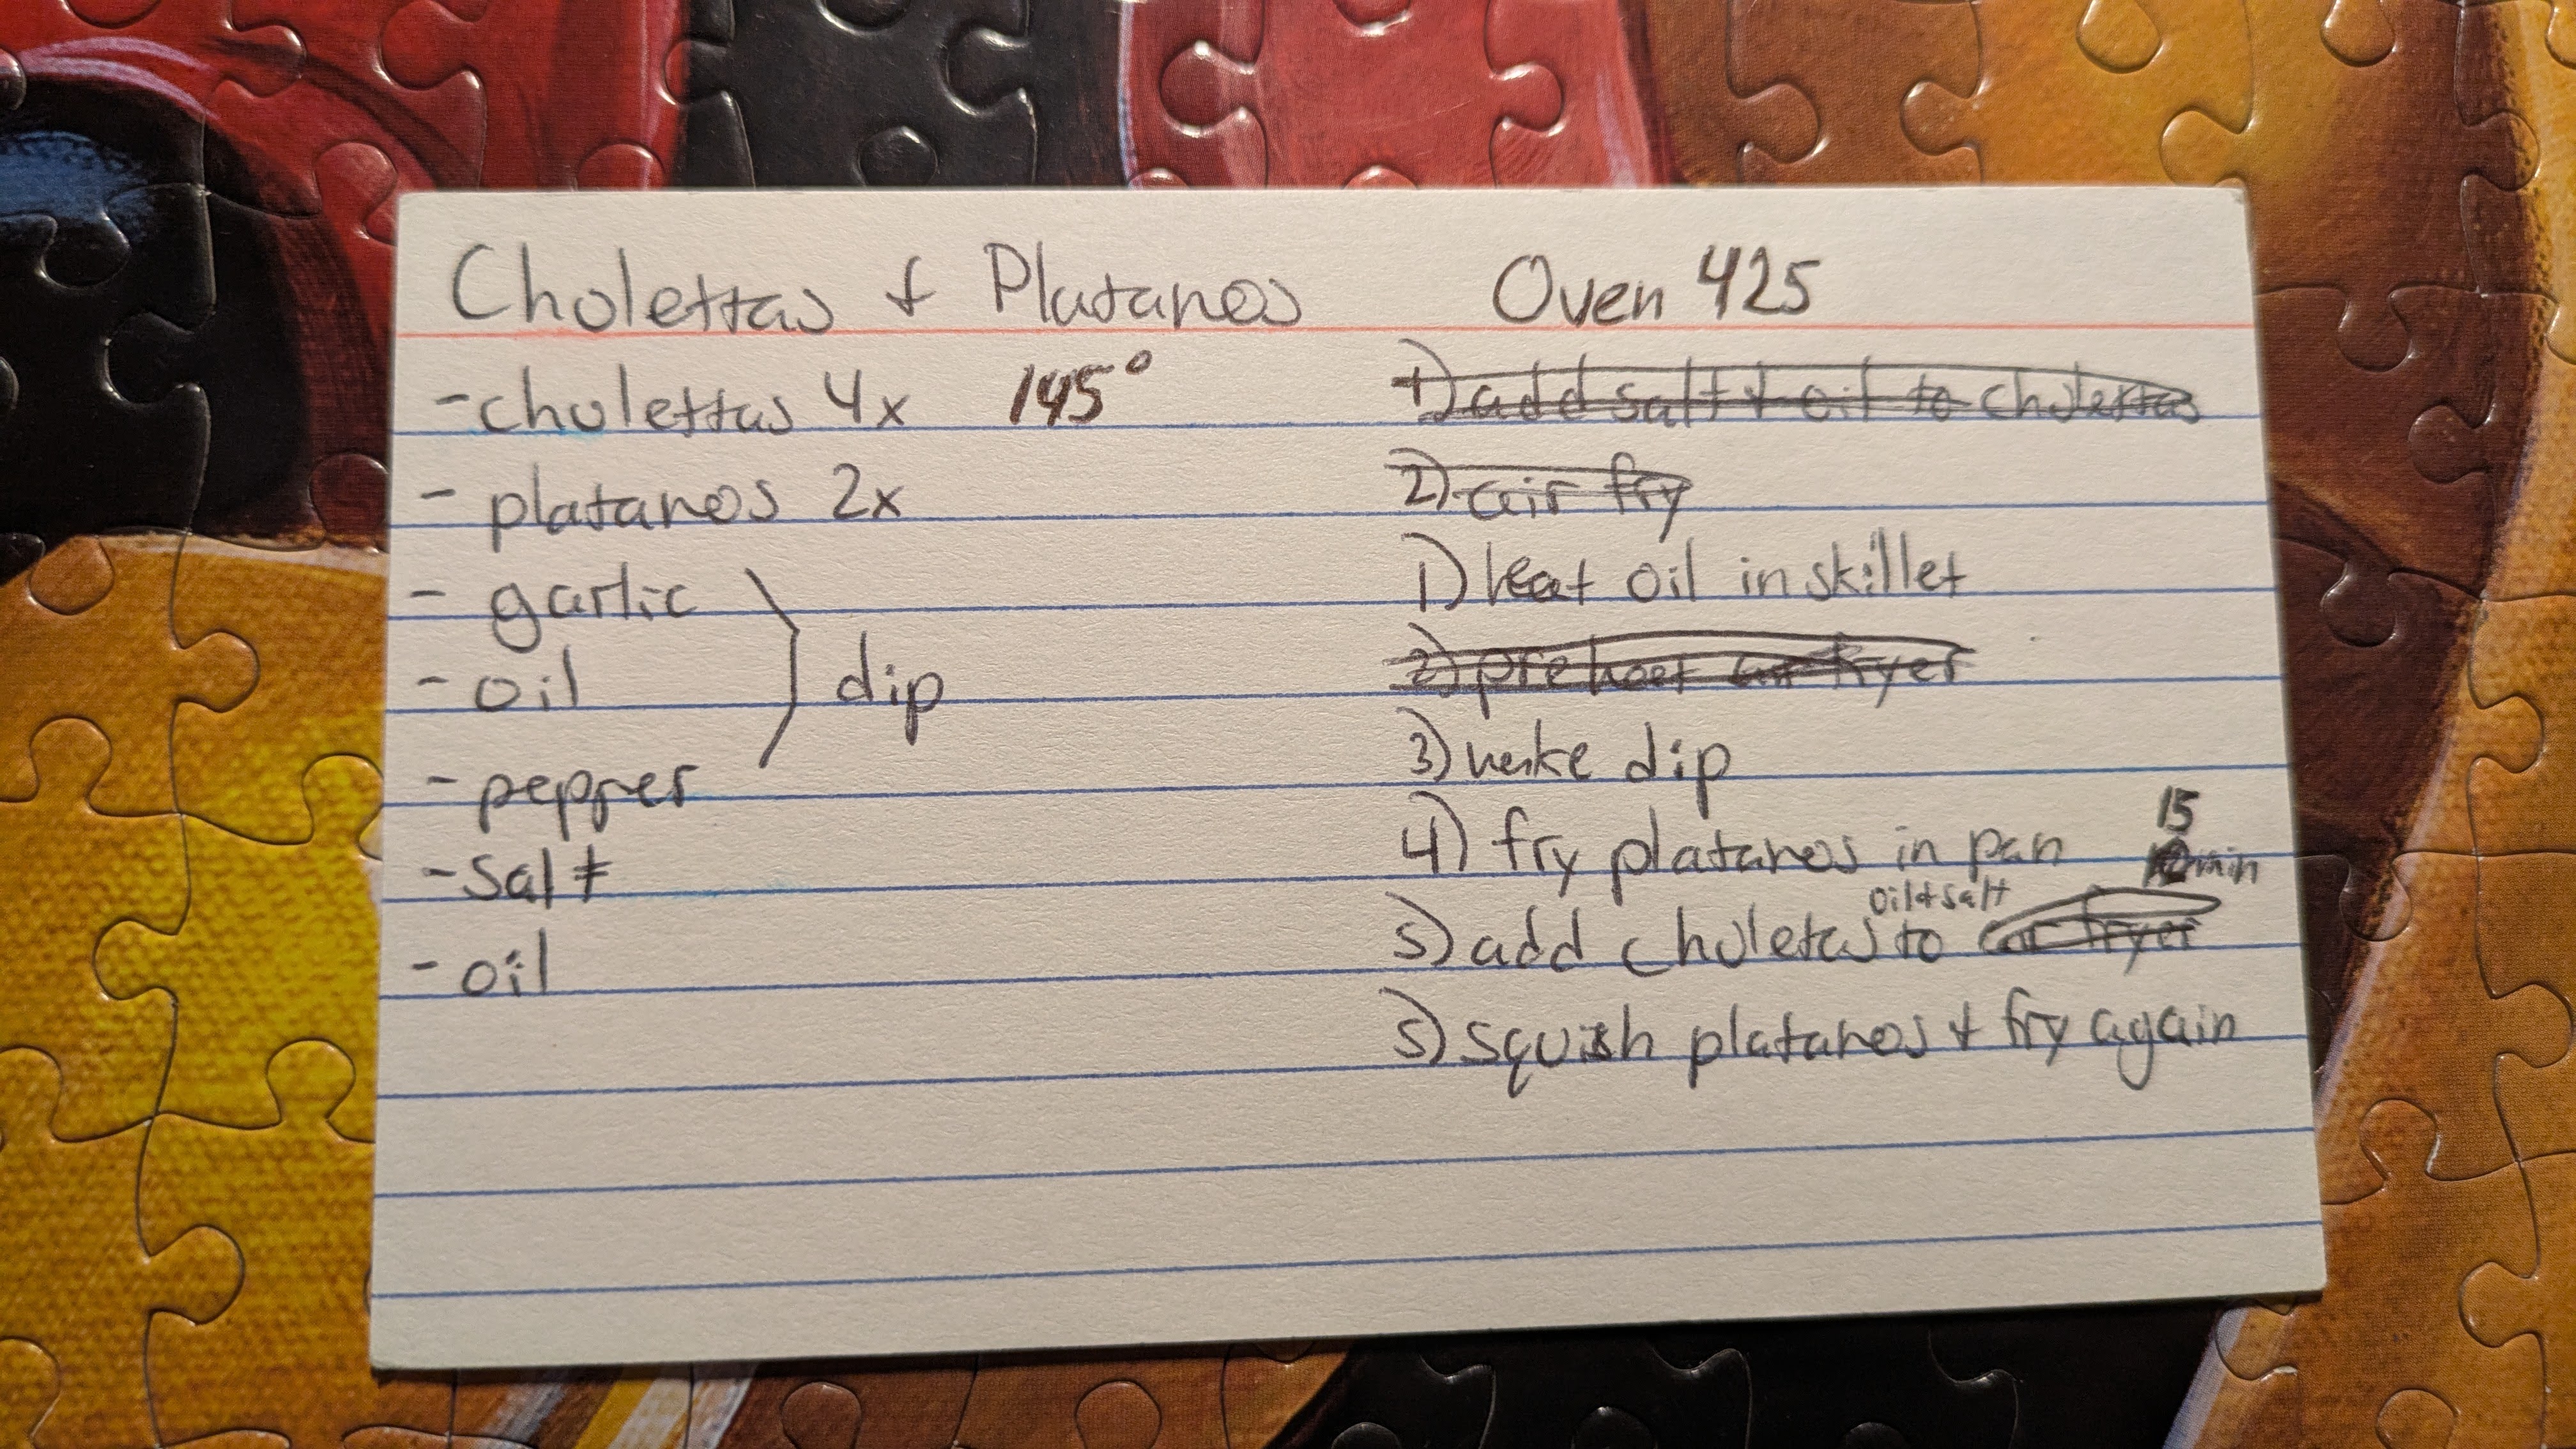 Cholettas & Platanos
Oven 425
- cholettas 4x 145°
- platanos 2x
- garlic
- oil
- pepper
dip
- salt
- oil
1) add salt & oil to cholettas
2) air fry
1) heat oil in skillet
2) preheat air fryer
3) make dip
4) fry platanos in pan
15
min
oil & salt
5) add choletas to air fryer
5) squish platanos & fry again